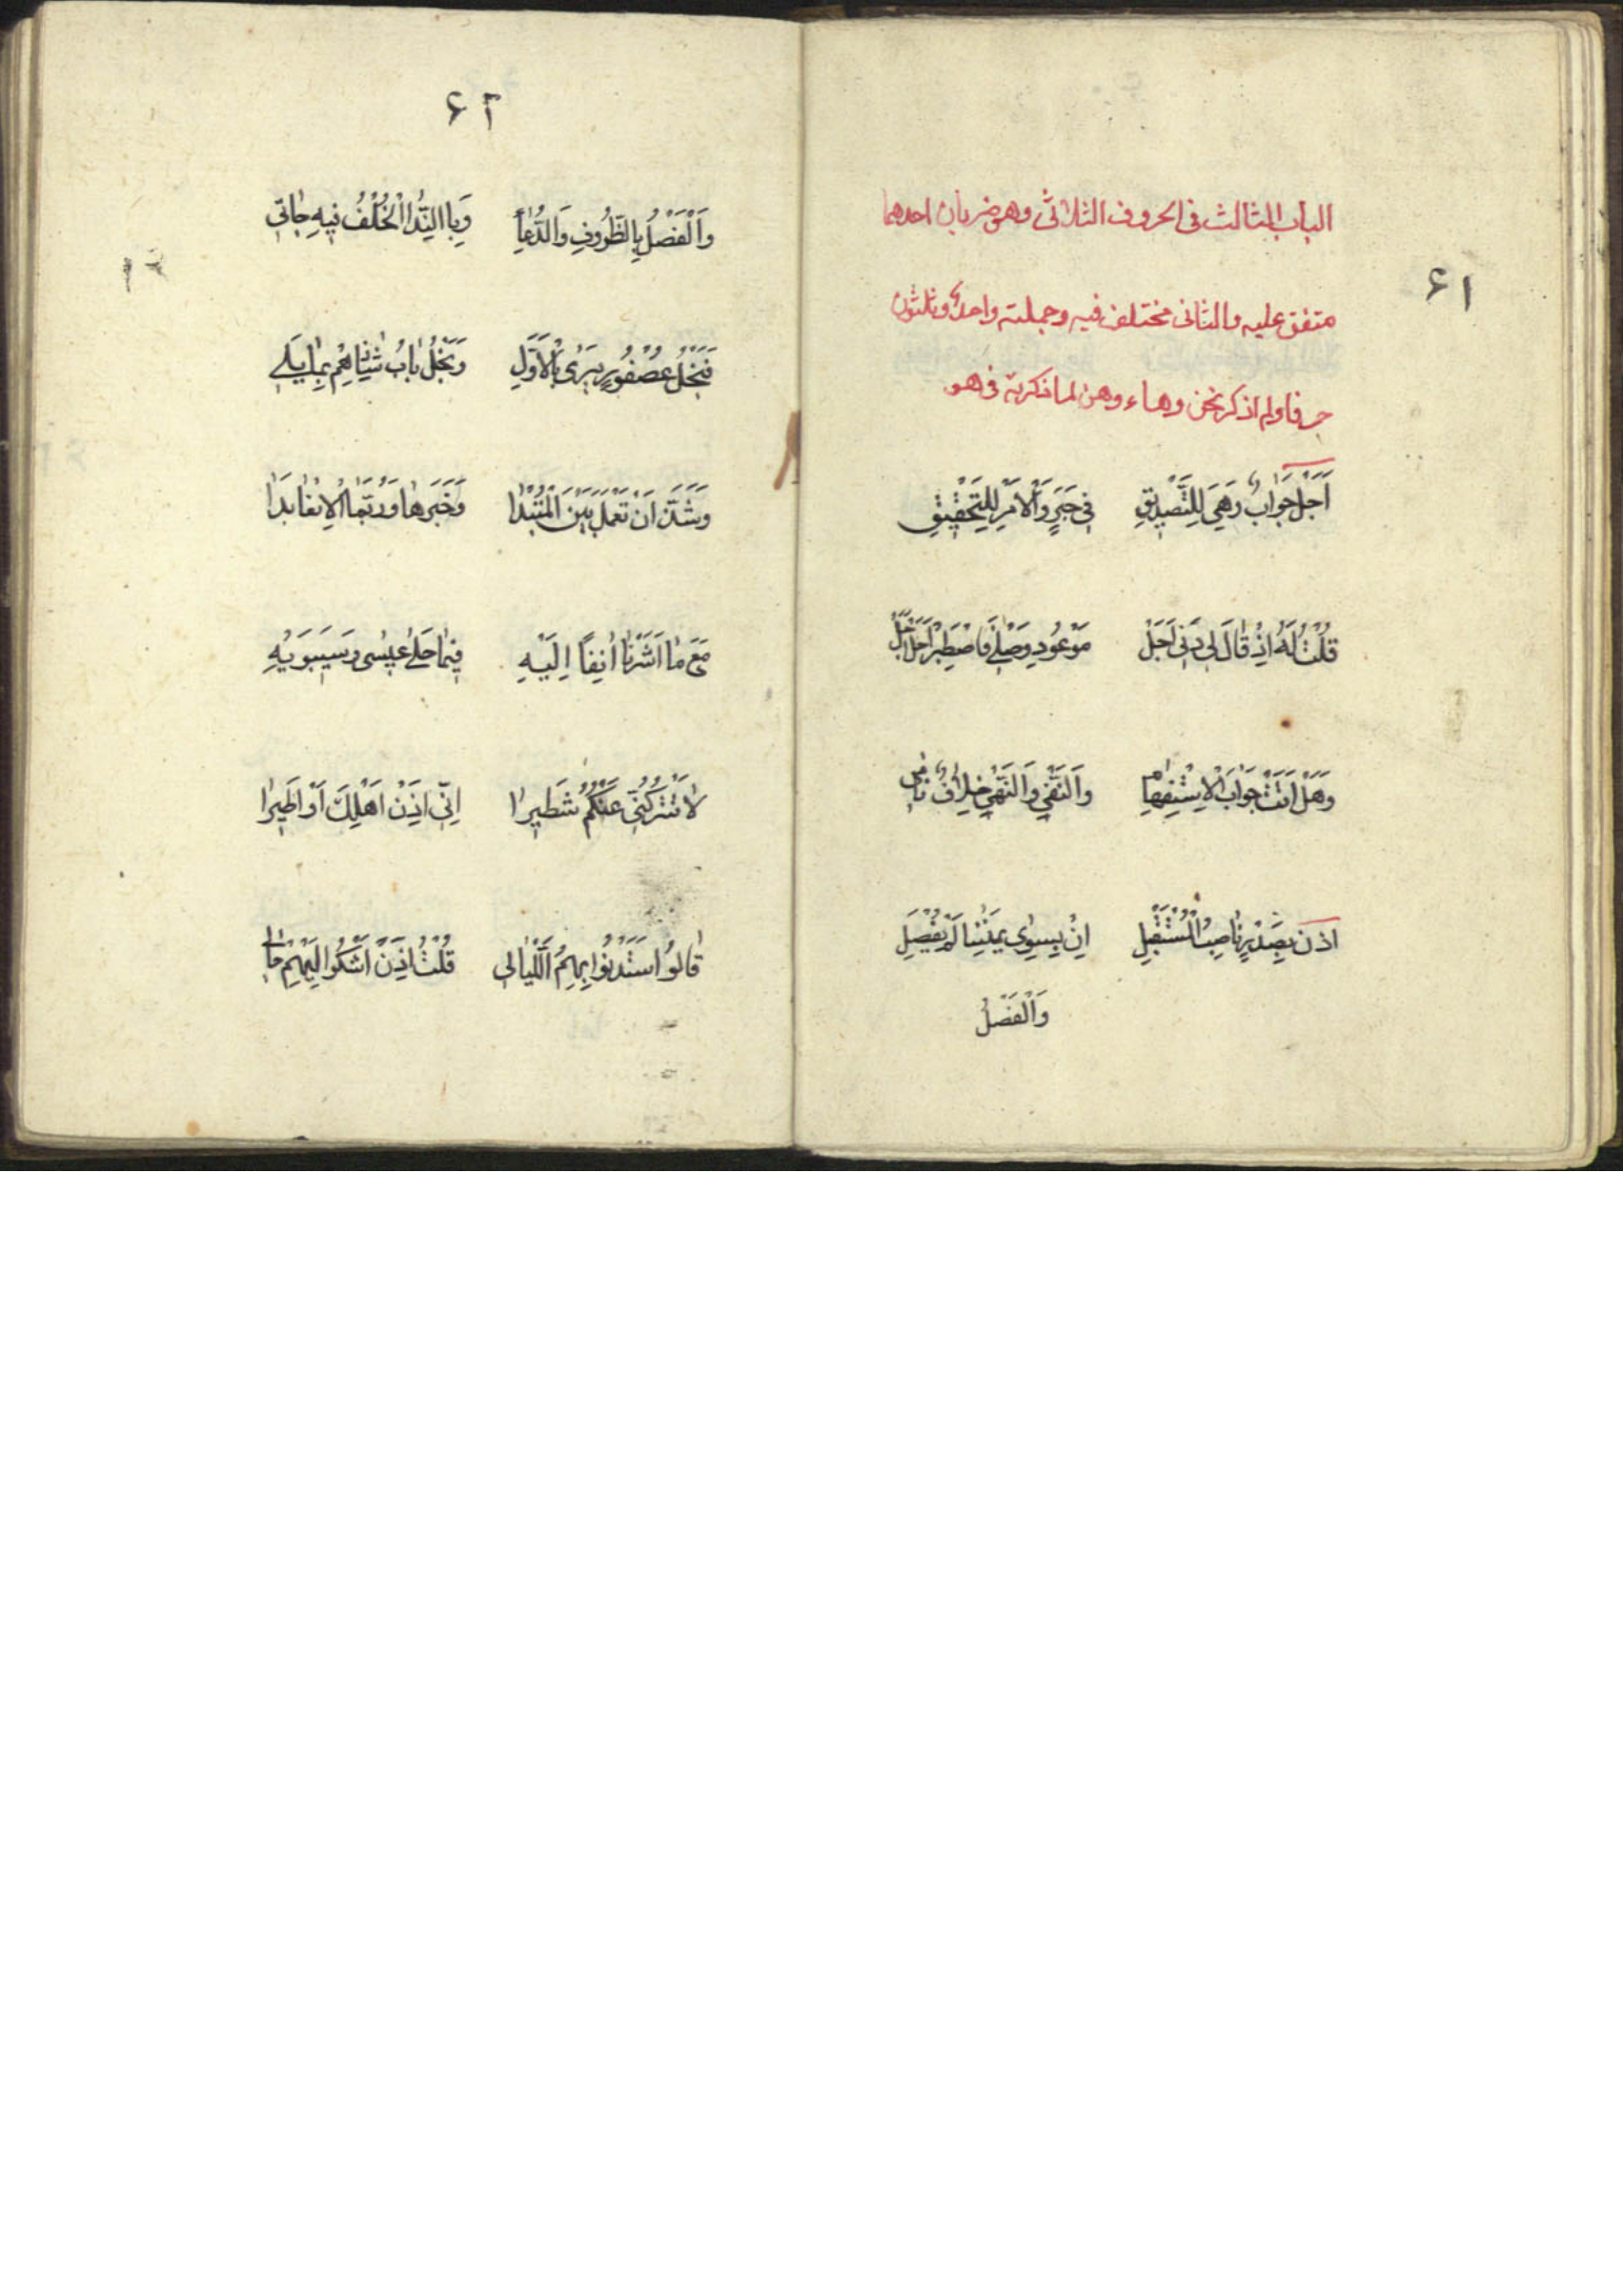 ۶۱
الباب الثالث فى الحروف الثلاثى وهو ضربان احدهما
متفق عليه والثانى مختلف فيه وجملته واحد وثلثون
حرفا ولم اذكر نحن وهاء وهن لما ذكرته فى هو
اَجَلْ جَوَابٌ وَهِيَ لِلتَّصْدِيقِ فِى خَبَرٍ وَالْاَمْرِ لِلتَّحْقِيقِ
قُلْتُ لَهُ اِذْ قَالَ لِى دَنَى اَجَلْ مَوْعُودِ وَصْلِي فَاصْطَبِرْ اَجَلْ اَجَلْ
وَهَلْ اَتَتْ جَوَابَ الْاِسْتِفْهَامِ وَالنَّفْيِ وَالنَّهْيِ خِلَافٌ نَامِى
اذن بِصَدْرٍ نَاصِبُ الْمُسْتَقْبِلِ اِنْ بِسِوٰى يَمِينِنَا لَمْ يُفْصَلِ
وَالْفَصْلُ
۶۲
وَالْفَصْلُ بِالظُّرُوفِ وَالدُّعَاءِ وَبِالنِّدَا الْخُلْفُ فِيهِ جَائِى
فَنَجْلُ عُصْفُورٍ يَرٰى بِالْاَوَّلِ وَنَجْلُ بَابُ شَاذٍ ثَانِيهِمْ بِمَا يَلِى
وَشَذَّ اَنْ تَعْمَلَ بَيْنَ الْمُبْتَدَا وَخَبَرِهَا وَرُبَّمَا الْاِلْغَا بَدَا
مَعَ مَا اَشَرْنَا اٰنِفاً اِلَيْهِ فِيمَا حَكٰى عِيسٰى وَسِيبَوَيْهِ
لَا تَتْرُكَنِّى عَنْكُمْ شَطِيرَا اِنِّى اِذَنْ اَهْلِكَ اَوْ اَطِيرَا
قَالُوا سَتَدْنُوا بِهِمُ اللَّيَالِى قُلْتُ اِذَنْ اَشْكُوا اِلَيْهِمْ حَالِى